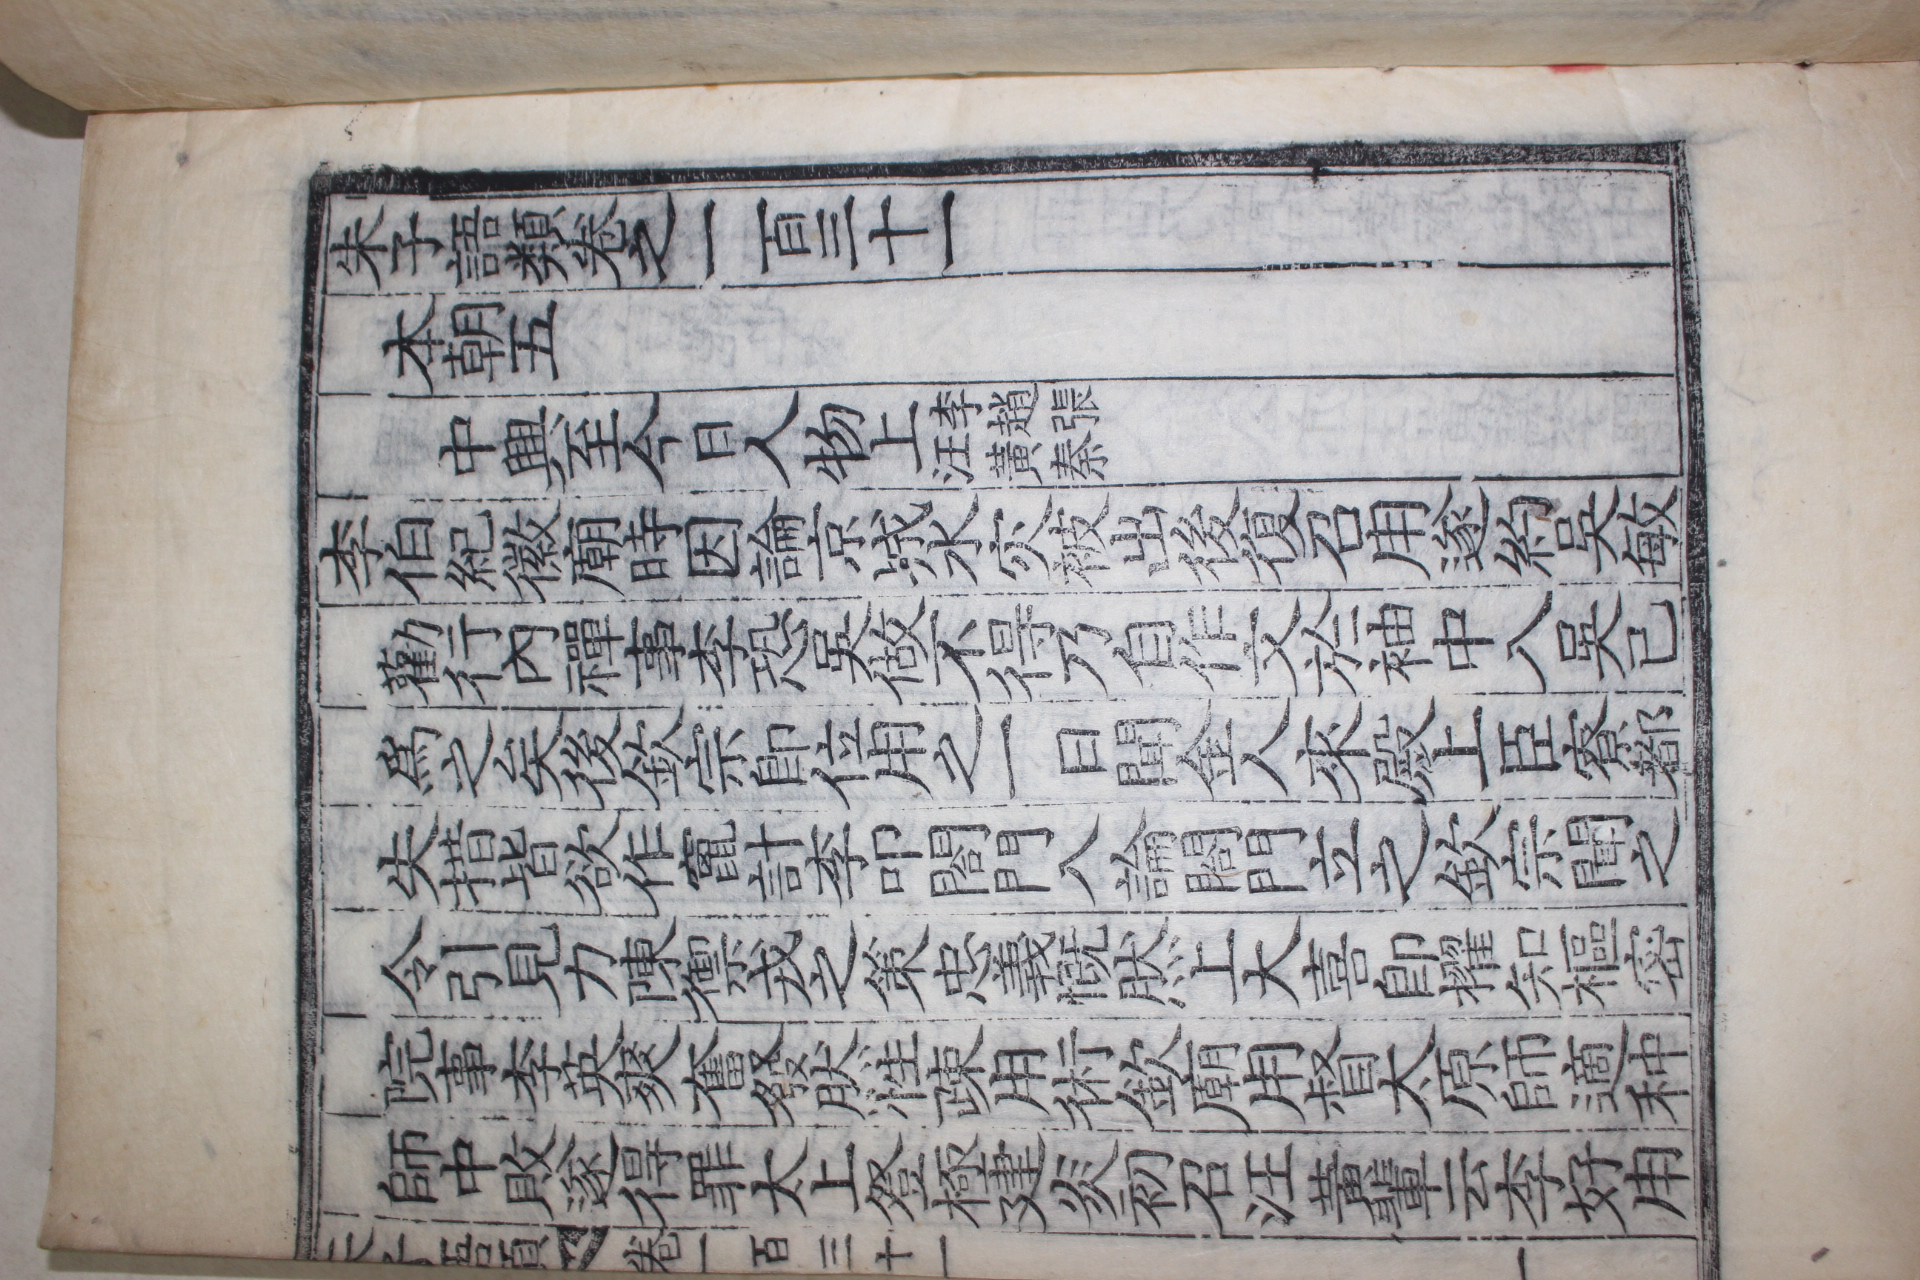 朱子語類卷之一百三十一
本朝五
中興至今日人物上李趙張汪黃秦
李伯紀徽廟時因論京城水灾被出後復召用遂約吳敏
勸行內禪事李恐吳做不得乃自作文於袖中入吳已
爲之矣後欽宗卽位用之一日聞金人來殿上臣寮都
失措皆欲作竄計李叩閤門入論閤門立之欽宗聞之
令引見力陳禦戎之策忠義慨然上大喜卽擢知樞密
院事李英爽奮發然性疎用術欽廟用督太原師適种
師中敗遂得罪太上登極建炎初召汪黃輩云李好用
朱子語類 卷一百三十一 一